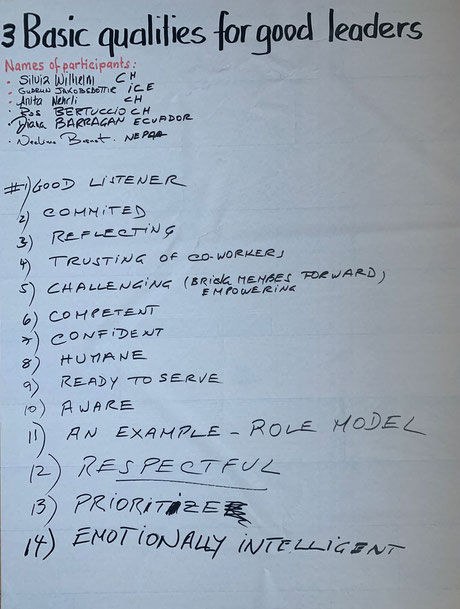 3 Basic qualities for good leaders
Names of participants:
· Silvia Wilhelm CH
· GUDRUN JAKOBSDOTTIR ICE
· Anita Nehrli CH
· Ros BERTUCCIO CH
· Diana BARRAGAN ECUADOR
· NEPAL
#1) GOOD LISTENER
2) COMMITED
3) REFLECTING
4) TRUSTING OF CO-WORKERS
5) CHALLENGING (BRING MEMBES FORWARD)
EMPOWERING
6) COMPETENT
7) CONFIDENT
8) HUMANE
9) READY TO SERVE
10) AWARE
11) AN EXAMPLE - ROLE MODEL
12) RESPECTFUL
13) PRIORITIZE
14) EMOTIONALLY INTELLIGENT